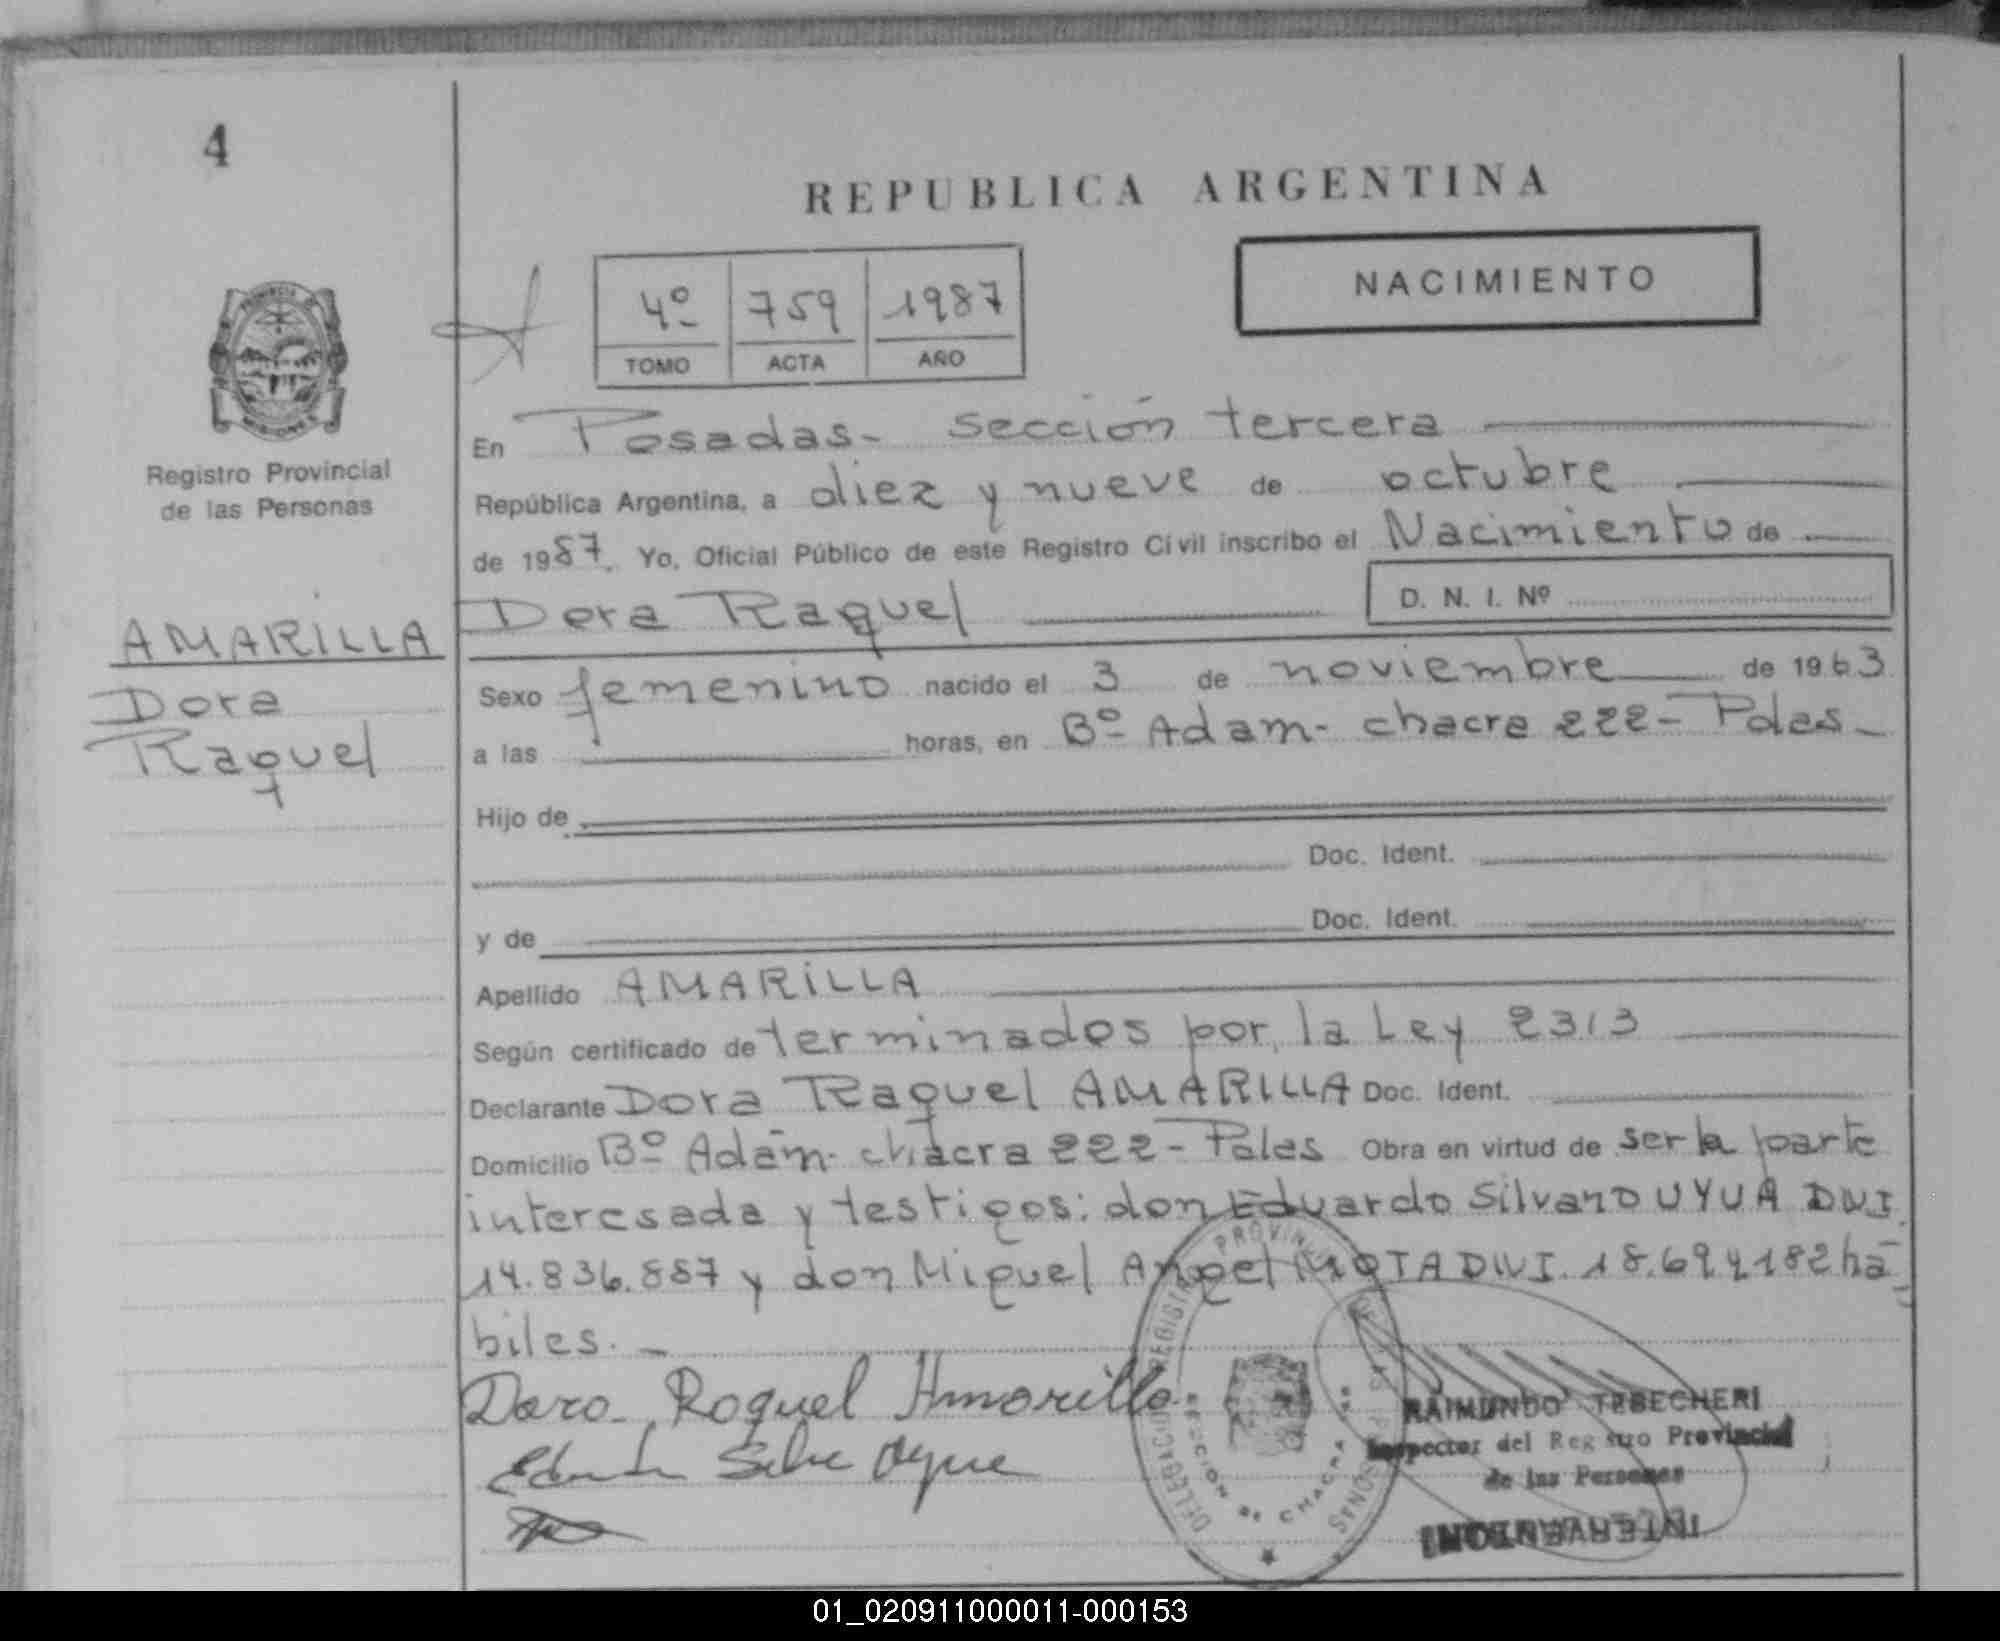 4
REPUBLICA ARGENTINA
NACIMIENTO
4º 759 1987
TOMO ACTA AÑO
Registro Provincial
de las Personas
AMARILLA
Dora
Raquel
En Posadas- sección tercera
República Argentina, a diez y nueve de octubre
de 1987. Yo, Oficial Público de este Registro Civil inscribo el Nacimiento de
Dora Raquel D. N. I. Nº
Sexo femenino nacido el 3 de noviembre de 1963
a las horas, en Bº Adam- chacra 222- Pdas-
Hijo de
Doc. Ident.
y de Doc. Ident.
Apellido AMARILLA
Según certificado de terminados por la Ley 2313
Declarante Dora Raquel AMARILLA Doc. Ident.
Domicilio Bº Adam- chacra 222- Pdas Obra en virtud de ser la parte
interesada y testigos: don Eduardo Silvano UYUA DNI.
14.836.887 y don Miguel Angel MOTA DNI. 18.694182 há
biles.-
Dora Raquel Amarilla
RAIMUNDO TEBECHERI
Inspector del Registro Provincial
de las Personas
INTERVENTOR
01_020911000011-000153